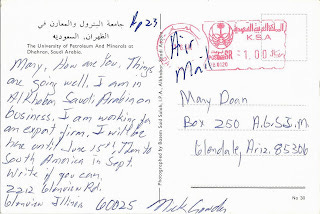 جامعة البترول والمعادن في
الظهران، السعودية
The University of Petroleum And Minerals at
Dhahran, Saudi Arabia.
Many, How are you. Things
are going well, I am in
AlKhobar Saudi Arabia on
business. I am working for
an export firm. I will be
here until June 15th, Then to
South America in Sept.
Write if you can,
2212 Glenview Rd.
Glenview Illinois 60025
Nick
Air
Mail
المملكة العربية السعودية
K.S.A.
SR
1.00
Mary Doan
Box 250 A.G.S.I.M.
Glendale, Ariz. 85306
No 30